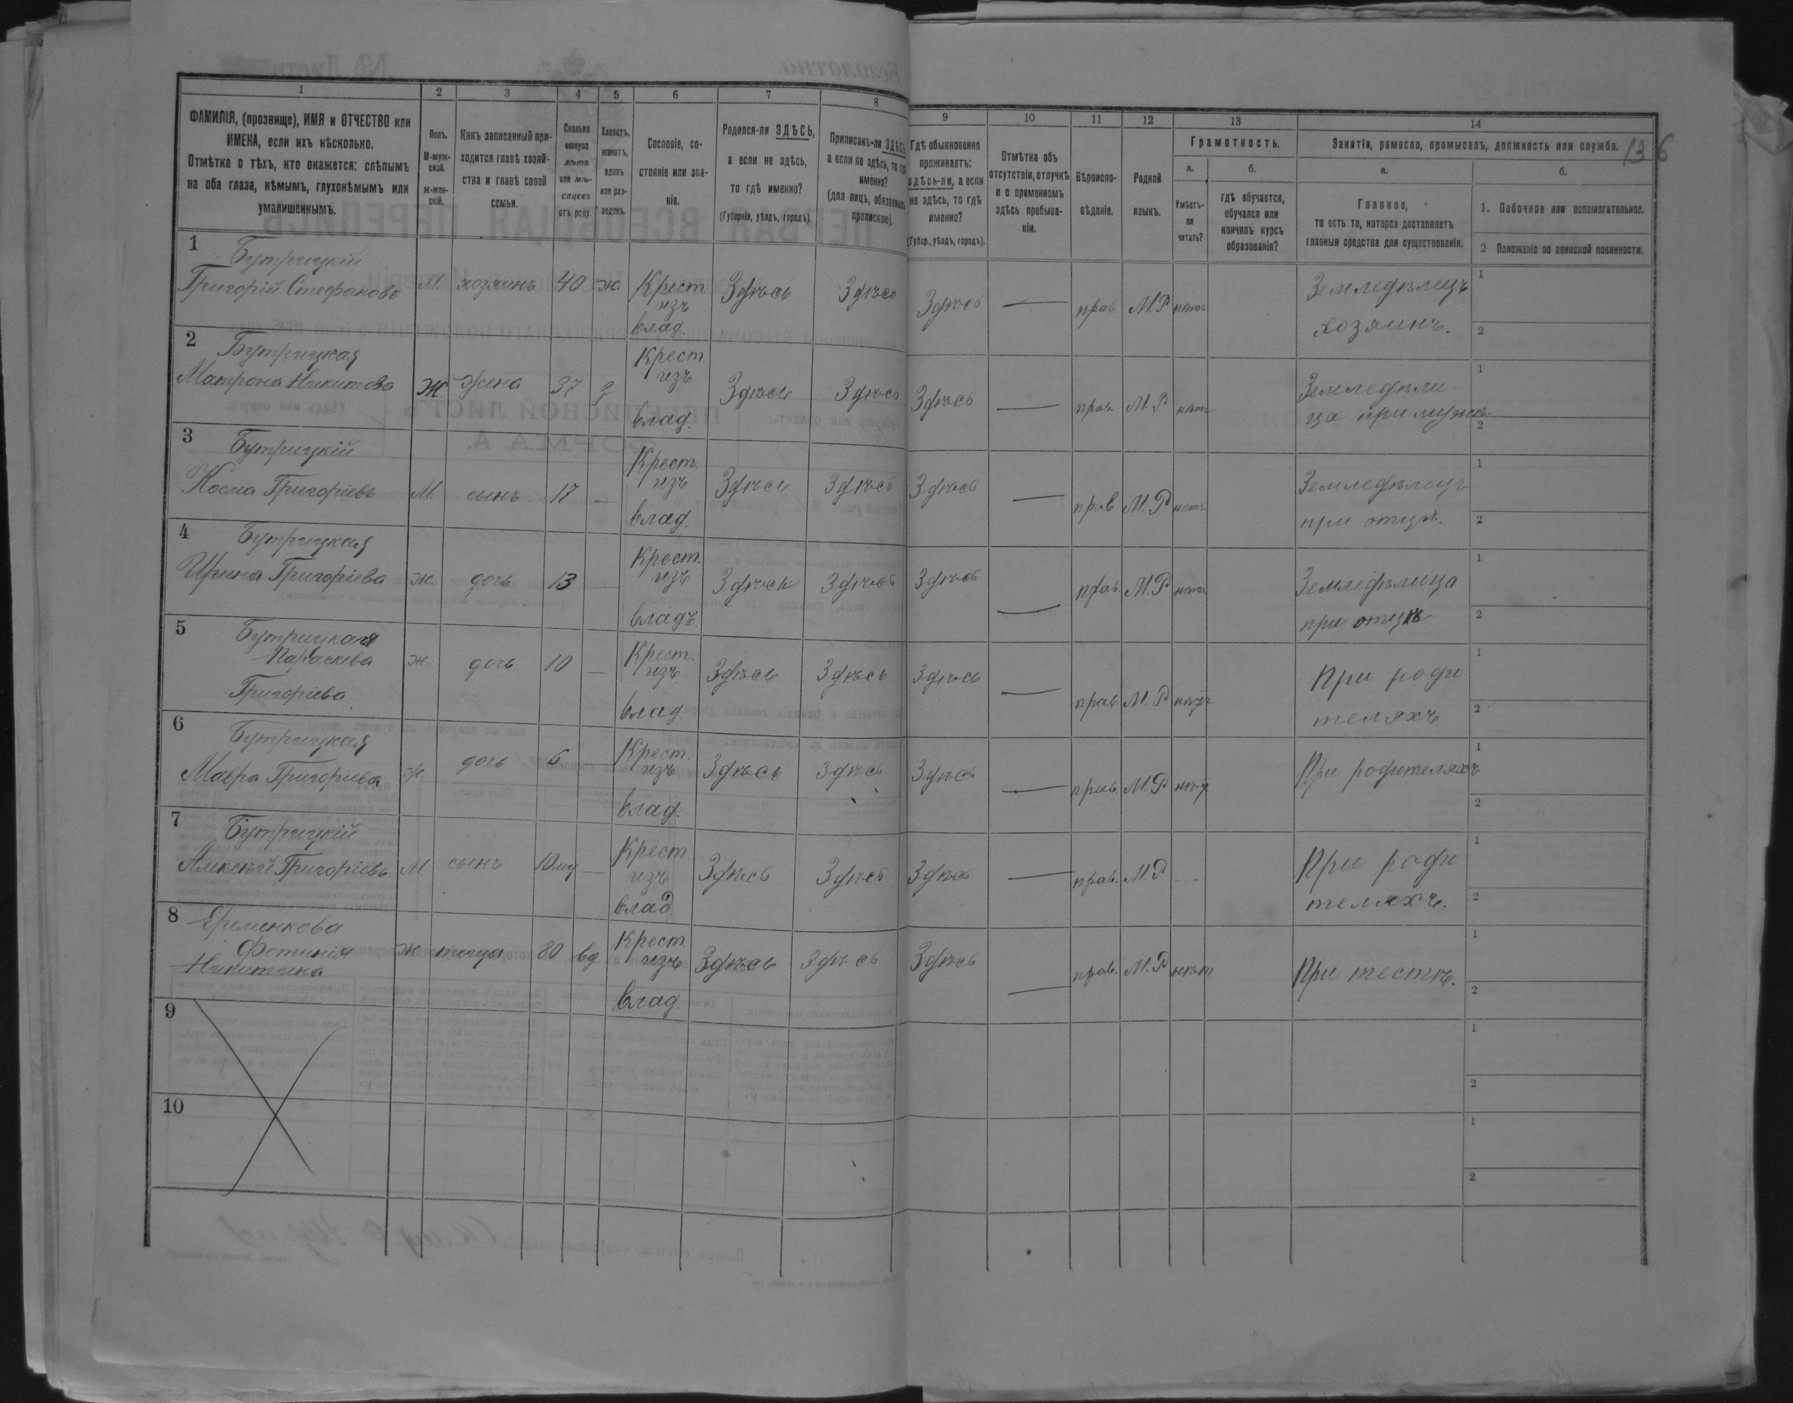 136
1
2
3
4
5
6
7
8
9
10
11
12
13
14
ФАМИЛІЯ, (прозвище), ИМЯ и ОТЧЕСТВО или
ИМЕНА, если ихъ нѣсколько.
Отмѣтка о тѣхъ, кто окажется: слѣпымъ
на оба глаза, нѣмымъ, глухонѣмымъ или
умалишеннымъ.
Полъ.
М-муж-
ской.
ж-жен-
скій.
Какъ записанный при-
ходится главѣ хозяй-
ства и главѣ своей
семьи.
Сколько
минуло
лѣтъ
или мѣ-
сяцевъ
отъ роду.
Холостъ,
женатъ,
вдовъ
или раз-
веденъ.
Сословіе, со-
стояніе или зва-
ніе.
Родился-ли ЗДѢСЬ,
а если не здѣсь,
то гдѣ именно?
(Губернія, уѣздъ, городъ).
Приписанъ-ли ЗДѢСЬ,
а если не здѣсь, то гдѣ
именно?
(для лицъ, обязанныхъ
припискою).
Гдѣ обыкновенно
проживаетъ:
здѣсь-ли, а если
не здѣсь, то гдѣ
именно?
(Губер., уѣздъ, городъ).
Отмѣтка объ
отсутствіи, отлучкѣ
и о временномъ
здѣсь пребыва-
ніи.
Вѣроиспо-
вѣданіе.
Родной
языкъ.
Грамотность.
а.
б.
Умѣетъ-
ли
читать?
гдѣ обучается,
обучался или
кончилъ курсъ
образованія?
Занятія, ремесло, промыселъ, должность или служба.
а.
б.
Главное,
то есть то, которое доставляетъ
главныя средства для существованія.
1. Побочное или вспомогательное.
2 Положеніе по воинской повинности.
1
Бутрицкій
Григорій Стефановъ
М.
хозяинъ
40
ж.
Крест
изъ
влад.
Здѣсь
Здѣсь
Здѣсь
—
прав
М.Р
нѣтъ
Земледѣлецъ
хозяинъ.
1
2
2
Бутрицкая
Матрона Никитова
Ж.
жена
37
з
Крест
изъ
влад.
Здѣсь
Здѣсь
Здѣсь
—
прав.
М.Р
нѣтъ
Земледѣли
ца при мужѣ
1
2
3
Бутрицкій
Косма Григоріевъ
М.
сынъ
17
—
Крест.
изъ
влад.
Здѣсь
Здѣсь
Здѣсь
—
прав
М.Р
нѣтъ
Земледѣлецъ
при отцѣ.
1
2
4
Бутрицкая
Ирина Григоріева
ж.
дочь
13
—
Крест.
изъ
владъ.
Здѣсь
Здѣсь
Здѣсь
—
прав.
М.Р
нѣтъ
Земледѣлица
при отцѣ
1
2
5
Бутрицкая
Параскева
Григоріева
ж.
дочь
10
—
Крест.
изъ
влад
Здѣсь
Здѣсь
Здѣсь
—
прав
М.Р
нѣтъ
При роди
теляхъ
1
2
6
Бутрицкая
Мавра Григоріева
ж.
дочь
6
—
Крест.
изъ
влад.
Здѣсь
Здѣсь
Здѣсь
—
прав.
М.Р
нѣтъ
При родителяхъ
1
2
7
Бутрицкій
Алексѣй Григоріевъ
М
сынъ
10
—
Крест.
изъ
влад
Здѣсь
Здѣсь
Здѣсь
—
прав.
М.Р
—
При роди
теляхъ.
1
2
8
Еременкова
Фотинія
Никитина
Ж
теща
80
вд.
Крест
изъ
влад.
Здѣсь
Здѣсь
Здѣсь
—
прав.
М.Р
нѣт
При тесть.
1
2
9
1
2
10
1
2